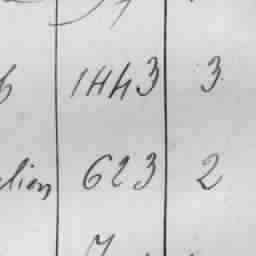 1443 3
lion 623 2